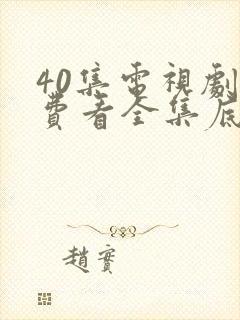 40集電視劇
費看全集底
趙實